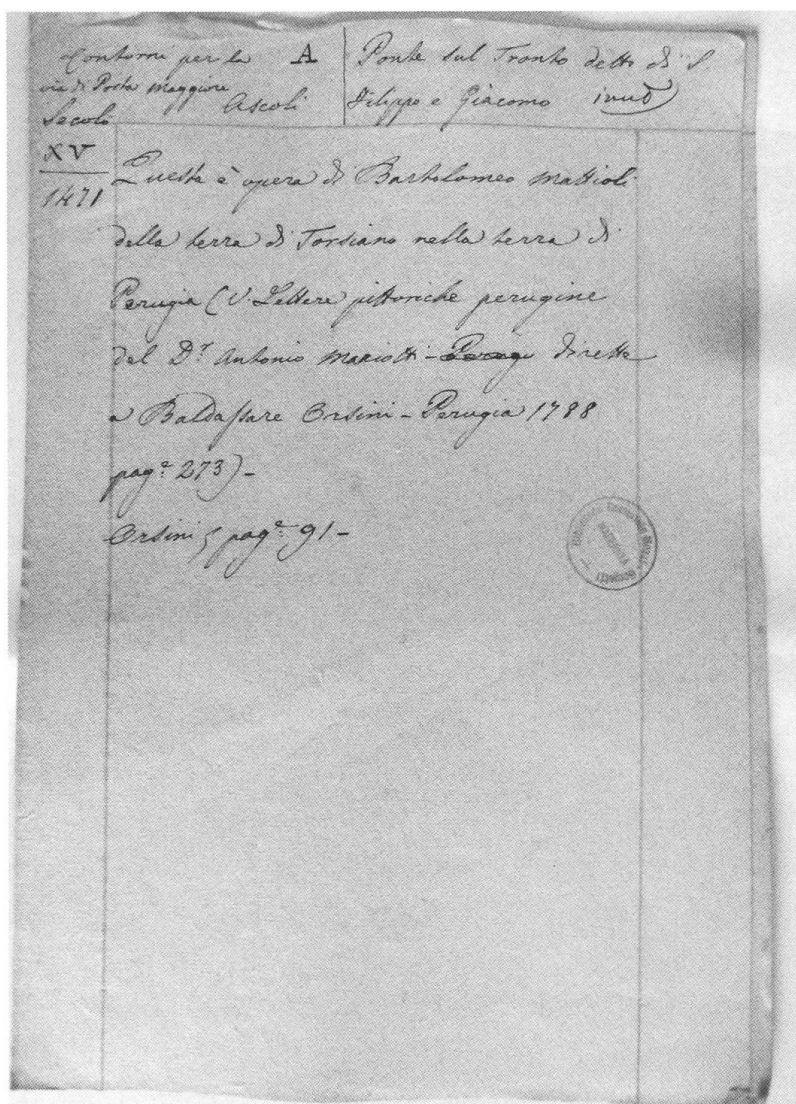 Contorni per la
via di Porta Maggiore
Ascoli
A
Ponte sul Tronto detto di S.
Filippo e Giacomo
Secolo
XV
1471
Questa è opera di Bartolomeo Mattioli
della terra di Torsiano nella terra di
Perugia (V. Lettere pittoriche perugine
del Dr. Antonio Mariotti - Perugi dirette
a Baldassare Orsini - Perugia 1788
pag.e 273) -
Orsini pag.e 91 -